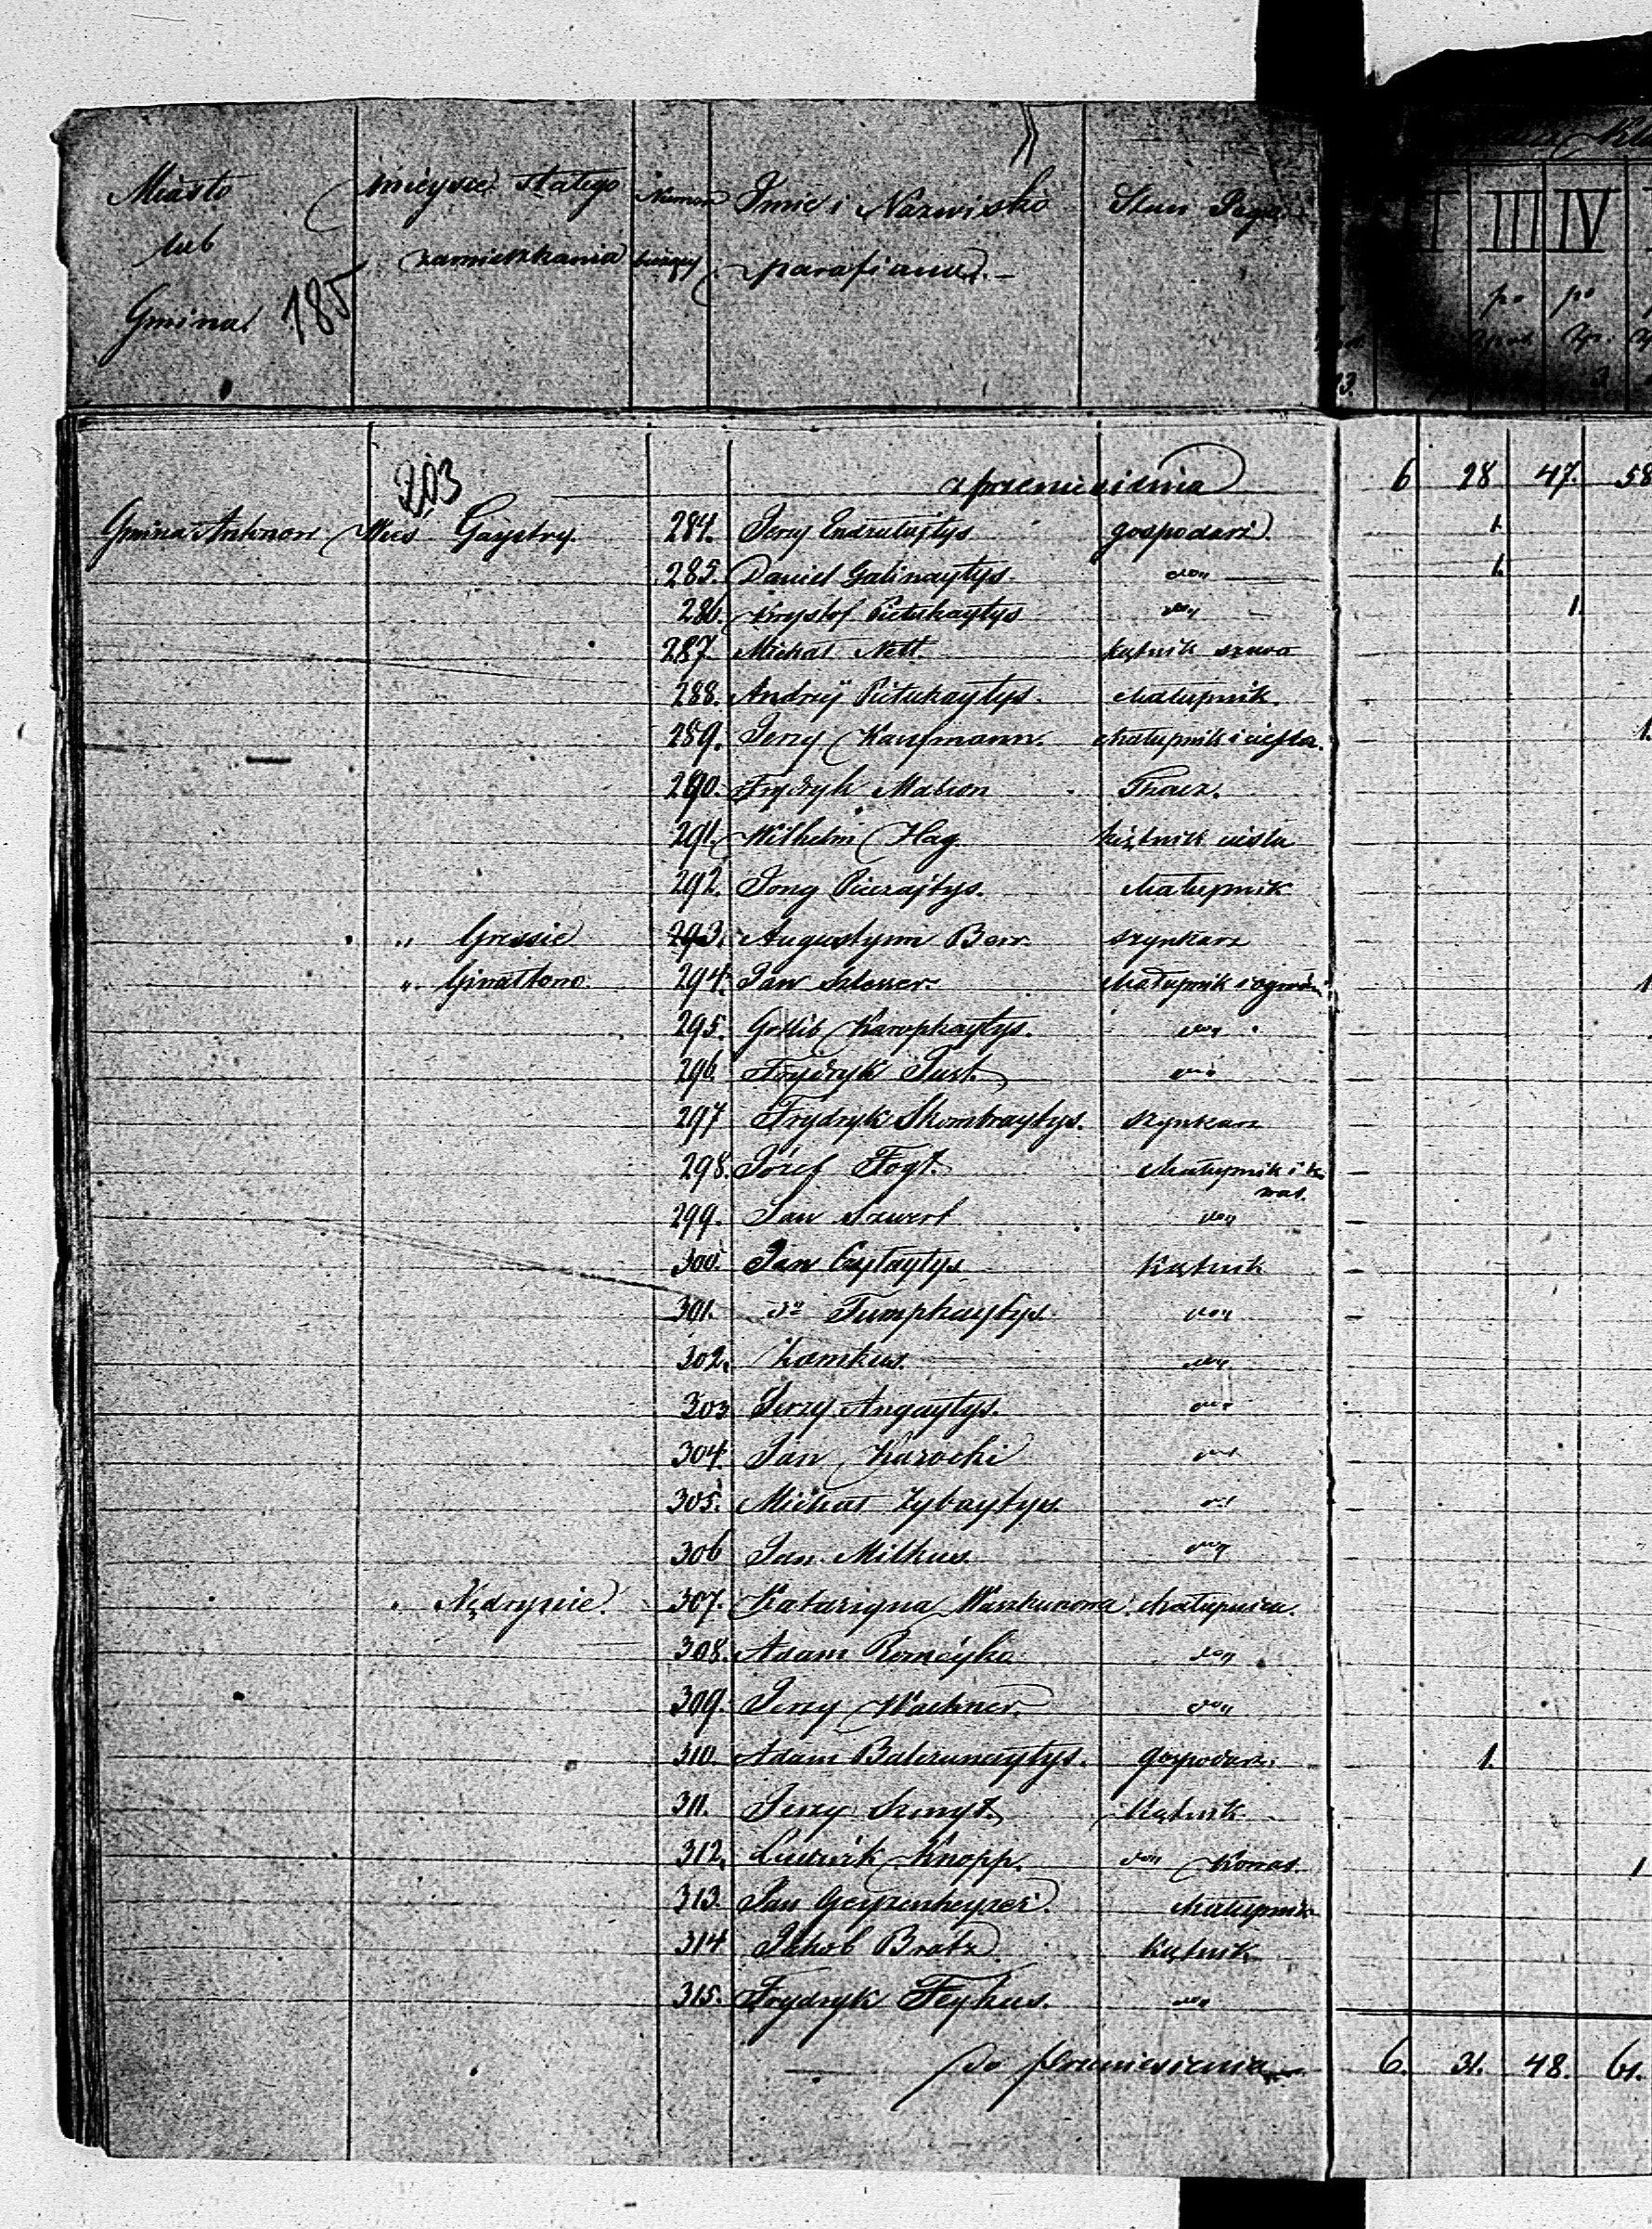 Miasto lub Gmina
185
mieysce stałego zamieszkania
Numer bieżący
Imie i Nazwisko parafiana.
Stan
III IV
po po
203
z przeniesienia 6 28 47. 58
Gmina Antonow Wieś Gaystry 284. Jerzy Endrulajtys gospodarz 1.
285. Daniel Galinaytys don 1.
286. Krysztof Pietukaytys don 1.
287 Michał Nett kątnik
288. Andrÿ Pietukaytys chałupnik.
289. Jerzy Kaufmann. chałupnik i cieśla. 1.
290. Frydryk Malion Tkacz.
291. Wilhelm Hag. kątnik cieśla
292. Jony chałupnik
" Gressie 293. Augustynn Berr. szynkarz
" Giwałtowo. 294. Jan Szlosser. chałupnik i 1
295. Gotlib Karopkaytys. don
296. Frydryk Just. don
297 Frydryk Skombraytys. szynkarz
298. Józef Fogt. chałupnik i kowal.
299. Jan Szwert don
300. Jan kątnik
301. do Tumpkaytys. don
302. Kamkus. don
303 Jerzy Angaytys. don
304. Jan Karocki don
305. Michał Zybaytys don
306 Jan Milkus. don
" Nędrynie. 307. Katarzyna Waszkunowa. chałupnica.
308. Adam Romeyko don
309. Jerzy Wachner. don
310. Adam Balczunaytys. gospodarz. 1.
311. Jerzy Szmyt kątnik
312. Ludwik Knopp. don Kowal. 1
313. Jan Geyzenheyzer. chałupnik
314 Jakob Bratz kątnik
315. Frydryk Feyhus. don
do przeniesienia 6. 31. 48. 61.